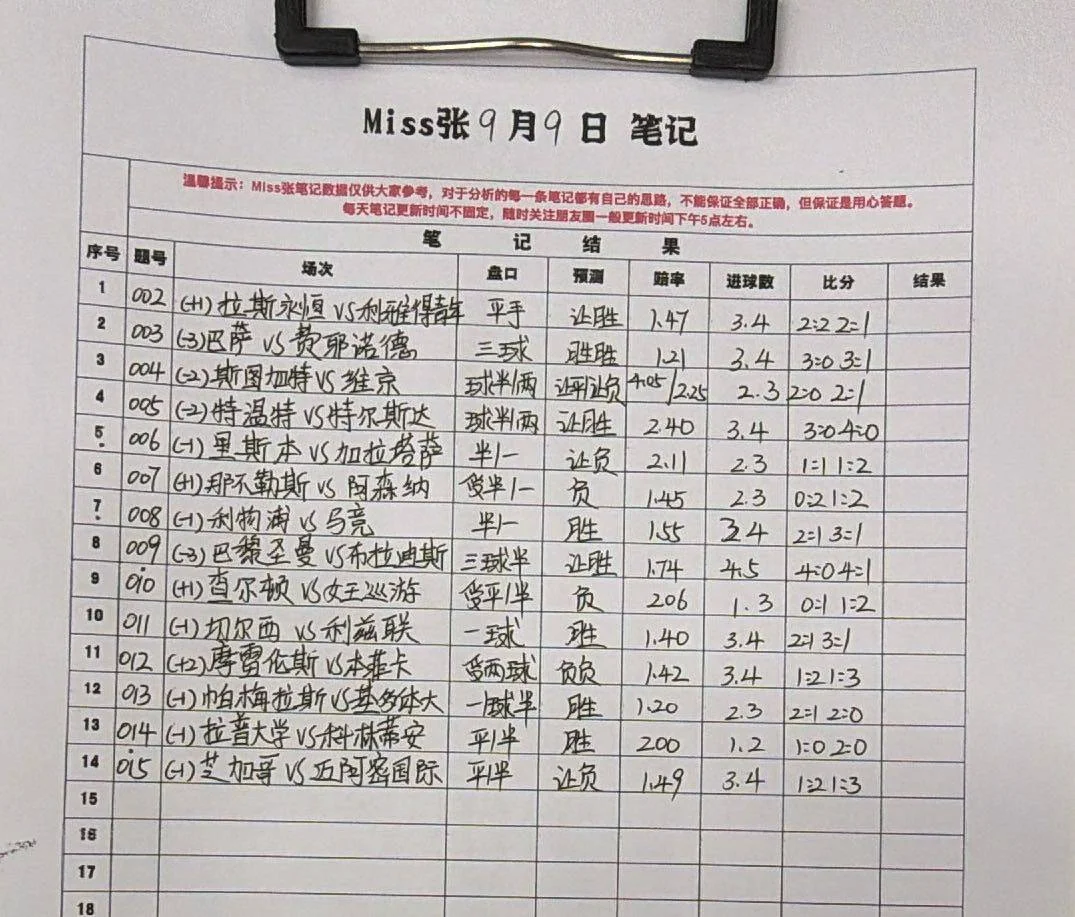 Miss张9月9日 笔记
温馨提示：Miss张笔记数据仅供大家参考，对于分析的每一条笔记都有自己的思路，不能保证全部正确，但保证是用心答题。
每天笔记更新时间不固定，随时关注朋友圈一般更新时间下午5点左右。
笔 记 结 果
序号 题号 场次 盘口 预测 赔率 进球数 比分 结果
1 002 (+1)拉斯永恒 VS 利雅得青年 平手 让胜 1.47 3.4 2=2 2=1
2 003 (-3)巴萨 VS 费耶诺德 三球 胜胜 1.21 3.4 3=0 3=1
3 004 (-2)斯图加特 VS 维京 球半/两 让平/让负 4.05/2.25 2.3 2=0 2=1
4 005 (-2)特温特 VS 特尔斯达 球半/两 让胜 2.40 3.4 3=0 4=0
5 006 (-1)里斯本 VS 加拉塔萨 半/一 让负 2.11 2.3 1=1 1=2
6 007 (+1)那不勒斯 VS 阿森纳 受半/一 负 1.45 2.3 0=2 1=2
7 008 (-1)利物浦 VS 马竞 半/一 胜 1.55 3.4 2=1 3=1
8 009 (-3)巴黎圣曼 VS 布拉迪斯 三球半 让胜 1.74 4.5 4=0 4=1
9 010 (+1)查尔顿 VS 女王巡游 受平/半 负 206 1.3 0=1 1=2
10 011 (-1)切尔西 VS 利兹联 一球 胜 1.40 3.4 2=1 3=1
11 012 (+2)摩雷伦斯 VS 本菲卡 受两球 负负 1.42 3.4 1=2 1=3
12 013 (-1)帕梅拉斯 VS 基多体大 一球半 胜 1.20 2.3 2=1 2=0
13 014 (-1)拉普大学 VS 科林蒂安 平/半 胜 200 1.2 1=0 2=0
14 015 (-1)芝加哥 VS 迈阿密国际 平/半 让负 1.49 3.4 1=2 1=3
15
16
17
18